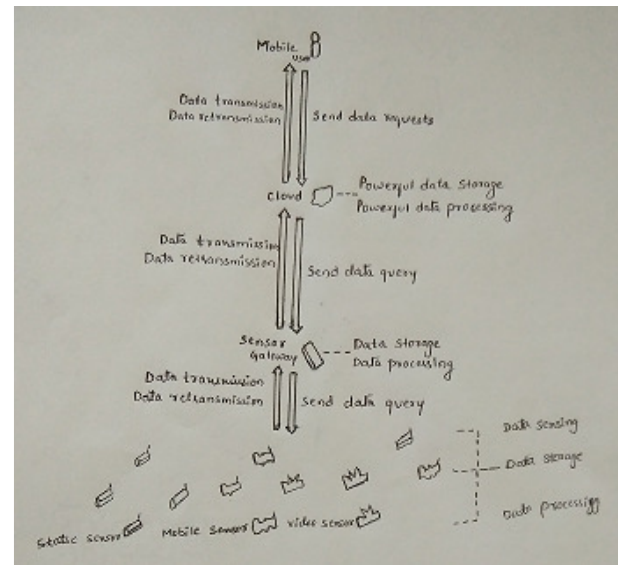 Mobile
user
Data transmission
Data retransmission
Send data requests
Cloud
Powerful data storage
Powerful data processing
Data transmission
Data retransmission
Send data query
Sensor
Gateway
Data Storage
Data processing
Data transmission
Data retransmission
Send data query
Data Sensing
Data Storage
Data processigg
Static sensor
Mobile Sensor
video sensor